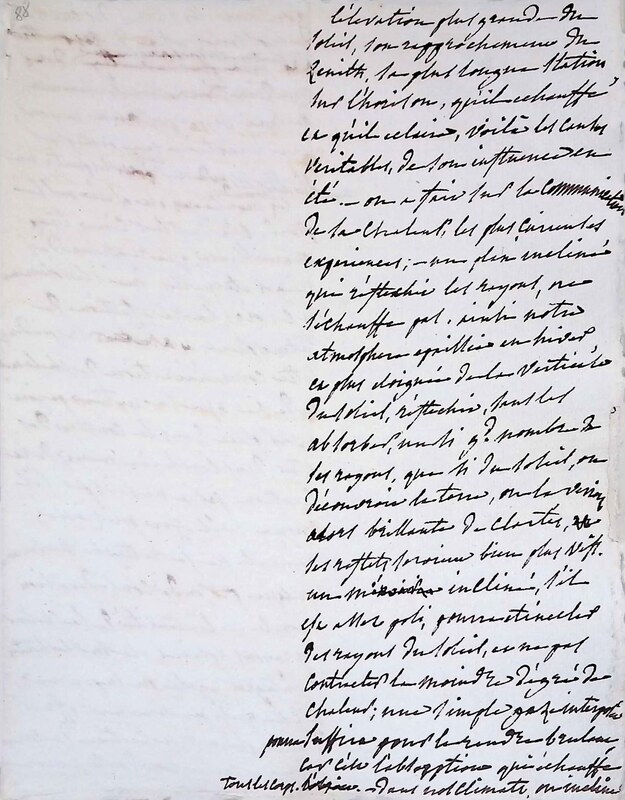 88
l'élevation plus grande du
soleil, son rapprochement du
Zenith, sa plus longue station
sur l'horison, qu'il echauffe
en qu'il eclaire, voilà les causes
veritables, de son influence en
été. – on a fait sur la communication
de la chaleur, les plus curieuses
experiences; – un plan incliné
qui réflechit les rayons, ne
s'échauffe pas. ainsi notre
atmosphere epaissie en hiver
en plus eloignée de la verticale
du soleil, réflechit, sans les
absorber, un si gd. nombre de
ses rayons, que si du soleil, on
découvroit la terre, on la verroit
alors brillante de clartés,
ses reflets seroient bien plus vifs.
un incliné, s'il
est assez poli, pourra étinceler
des rayons du soleil, en ne pas
contracter le moindre dégré de
chaleur; une simple gaze interposée
pourra suffire pour le rendre brulant
car c'est l'absorption qui échauffe
tous les corps. – dans nos climats, on incline